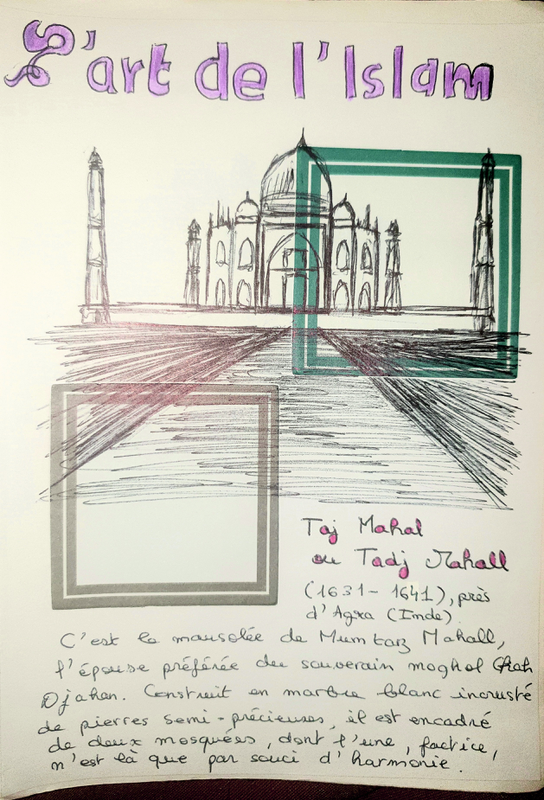 L'art de l'Islam
Taj Mahal
ou Tadj Mahall
(1631 - 1641), près
d'Agra (Inde)
C'est le mausolée de Mumtaz Mahall,
l'épouse préférée du souverain moghol Chah
Djahan. Construit en marbre blanc incrusté
de pierres semi-précieuses, il est encadré
de deux mosquées, dont l'une, factice,
n'est là que par souci d'harmonie.